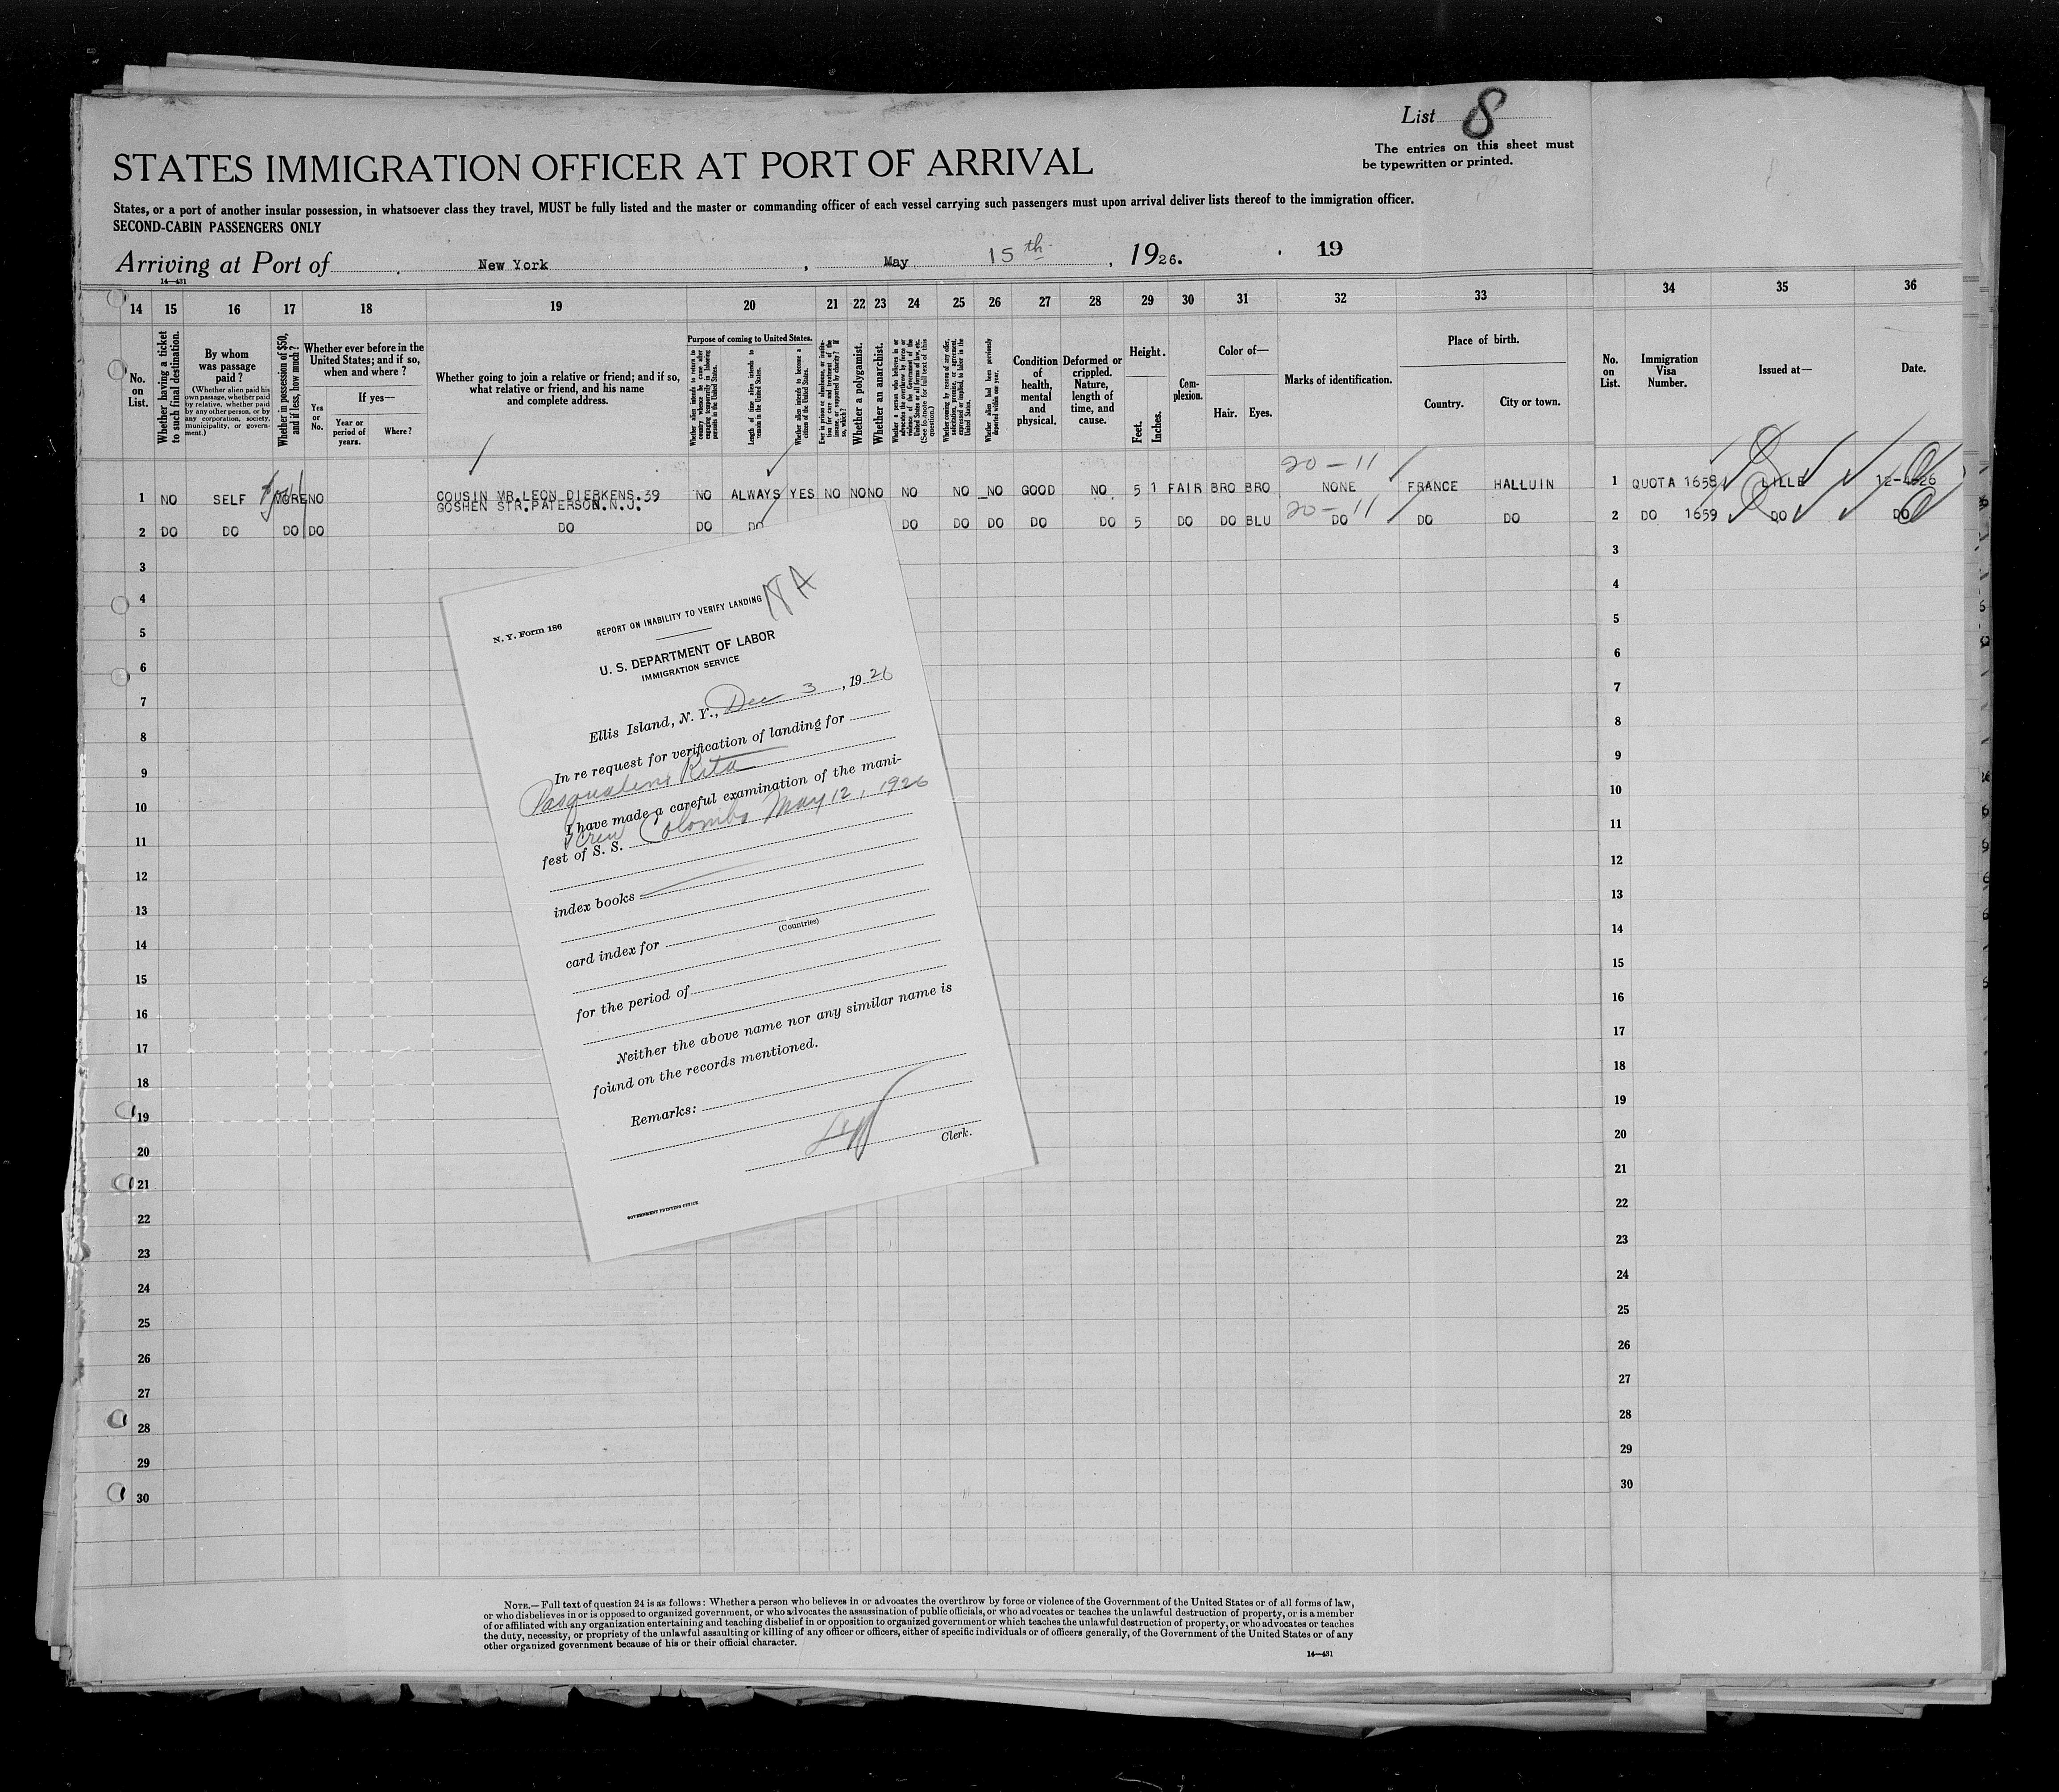 List 8
The entries on this sheet must
be typewritten or printed.
STATES IMMIGRATION OFFICER AT PORT OF ARRIVAL
States, or a port of another insular possession, in whatsoever class they travel, MUST be fully listed and the master or commanding officer of each vessel carrying such passengers must upon arrival deliver lists thereof to the immigration officer.
SECOND-CABIN PASSENGERS ONLY
Arriving at Port of New York, May 15th, 1926. 19
14—431
14 15 16 17 18 19 20 21 22 23 24 25 26 27 28 29 30 31 32 33 34 35 36
No. on List.
Whether having a ticket to such final destination.
By whom was passage paid?
(Whether alien paid his own passage, whether paid by relative, whether paid by any other person, or by any corporation, society, municipality, or government.)
Whether in possession of $50, and if less, how much?
Whether ever before in the United States; and if so, when and where?
Yes or No.
If yes—
Year or period of years.
Where?
Whether going to join a relative or friend; and if so, what relative or friend, and his name and complete address.
Purpose of coming to United States.
Whether alien intends to return to country whence he came after engaging temporarily in laboring pursuits in the United States.
Length of time alien intends to remain in the United States.
Whether alien intends to become a citizen of the United States.
Ever in prison or almshouse, or institution for care and treatment of the insane, or supported by charity? If so, which?
Whether a polygamist.
Whether an anarchist.
Whether a person who believes in or advocates the overthrow by force or violence of the Government of the United States or all forms of law, etc. (See footnote for full text of this question.)
Whether coming by reason of any offer, solicitation, promise, or agreement, expressed or implied, to labor in the United States.
Whether alien had been previously deported within one year.
Condition of health, mental and physical.
Deformed or crippled. Nature, length of time, and cause.
Height.
Feet. Inches.
Complexion.
Color of—
Hair. Eyes.
Marks of identification.
Place of birth.
Country. City or town.
No. on List.
Immigration Visa Number.
Issued at—
Date.
20-11
1 NO SELF MORE NO COUSIN MR.LEON DIERKENS.39 NO ALWAYS YES NO NO NO NO NO NO GOOD NO 5 1 FAIR BRO BRO NONE FRANCE HALLUIN 1 QUOTA 1658 LILLE
GOSHEN STR.PATERSON.N.J.
20-11
2 DO DO DO DO DO DO DO DO DO DO DO DO 5 DO DO BLU DO DO DO 2 DO 1659 DO DO
3 3
4 4
5 5
6 6
7 7
8 8
9 9
10 10
11 11
12 12
13 13
14 14
15 15
16 16
17 17
18 18
19 19
20 20
21 21
22 22
23 23
24 24
25 25
26 26
27 27
28 28
29 29
30 30
N. Y. Form 186
REPORT ON INABILITY TO VERIFY LANDING
U. S. DEPARTMENT OF LABOR
IMMIGRATION SERVICE
Ellis Island, N. Y., Dec 3, 1926
In re request for verification of landing for
Rita
I have made a careful examination of the mani-
crew
fest of S. S. Colombo May 12, 1926
index books
card index for
(Countries)
for the period of
Neither the above name nor any similar name is
found on the records mentioned.
Remarks:
Clerk.
GOVERNMENT PRINTING OFFICE
NOTE.—Full text of question 24 is as follows: Whether a person who believes in or advocates the overthrow by force or violence of the Government of the United States or of all forms of law,
or who disbelieves in or is opposed to organized government, or who advocates the assassination of public officials, or who advocates or teaches the unlawful destruction of property, or is a member
of or affiliated with any organization entertaining and teaching disbelief in or opposition to organized government or which teaches the unlawful destruction of property, or who advocates or teaches
the duty, necessity, or propriety of the unlawful assaulting or killing of any officer or officers, either of specific individuals or of officers generally, of the Government of the United States or of any
other organized government because of his or their official character.
14—431